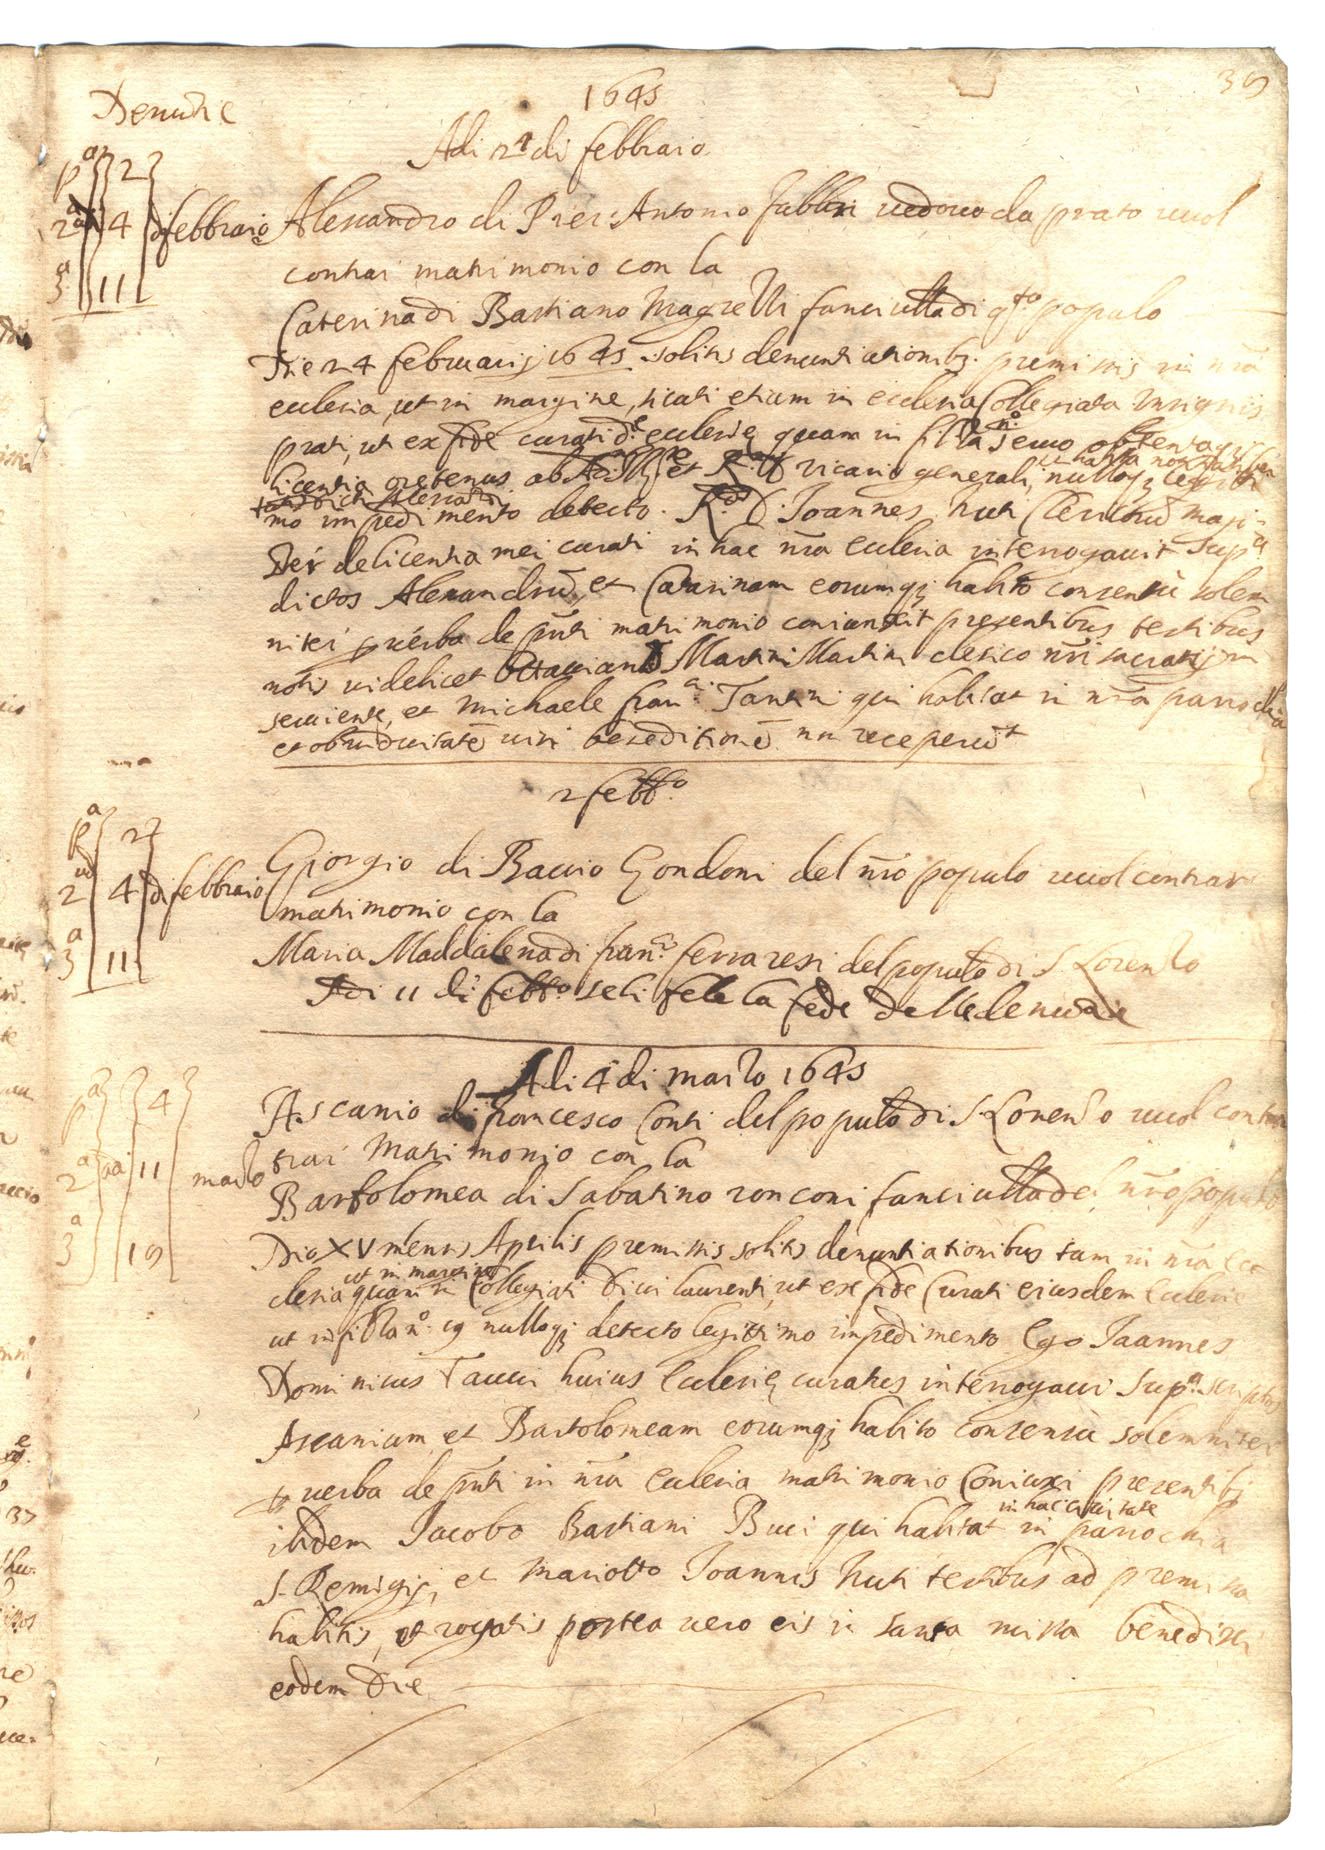 39
1645
Denutie
Adi 24 di febbraio
pa 2
2a 4 di febbraio
3a 11
Alessandro di Pier Antonio fabbri vedovo da prato vuol
contrar matrimonio con la
Caterina di Bastiano Magrelli fanciulla di qto populo
Die 24 februarij 1645 solitis denuntiationibq premissis in nrā
ecclesia, ut in margine, sicuti etiam in ecclesia Collegiata insignis
prati, ut ex fide curati de ecclesie quam in filla no servo obtentaq
licentia oretenus ab Illre et R. vicario generali, nulloq legitti
mo impedimento detecto. Rdus D. Joannes Nuti Clericus magi-
ster de licentia mei curati in hac nrā ecclesia interrogavit supa
dictos Alexandrū, et Catarinam eorumq habito consensu solem
niter p verba de pnti matrimonio coniunxit presentibus testibus
notis videlicet Octaviano Martini Martini clerico nri sacrarij
serviente, et Michaele franci Tantini qui habitat in nrā parrochia
et ob viduitatē viri beneditionē nō receperūt
2 febbo
pa 2
2a 4 di febbraio
3a 11
Giorgio di Baccio Gondoni del nro populo vuol contrar
matrimonio con la
Maria Maddalena di franco ferraresi del populo di S Lorenzo
Adi 11 di febbo se li fece la fede delle denutie
Adi 4 di marzo 1645
pa 4
2a 11 marzo
3a 19
Ascanio di francesco Conti del populo di S Lorenzo vuol con
trar Matrimonio con la
Bartolomea di Sabatino ronconi fanciulla del nro populo
Die XV mensis Aprilis premissis solitis denuntiationibus tam in nrā ec
ut in margine
clesia quam in Collegiati Divi Laurenti, ut ex fide Curati eiusdem Ecclesie
ut in filla no 19 nulloq detecto legittimo impedimento Ego Joannes
Dominicus Tacci huius Ecclesie curatus interrogavi supa scriptos
Ascanium et Bartolomeam eorumq habito consensu solemniter
p verba de pnti in nrā Ecclesia matrimonio coniuxi presentibq
in hac civitate
ibidem Jacobo Bastiani Buci qui habitat in parrochia
S. Remigij, et Mariotto Joannis Nuti testibus ad premissa
habitis, et rogatis postea vero eis in santa missa benedixi
eodem Die